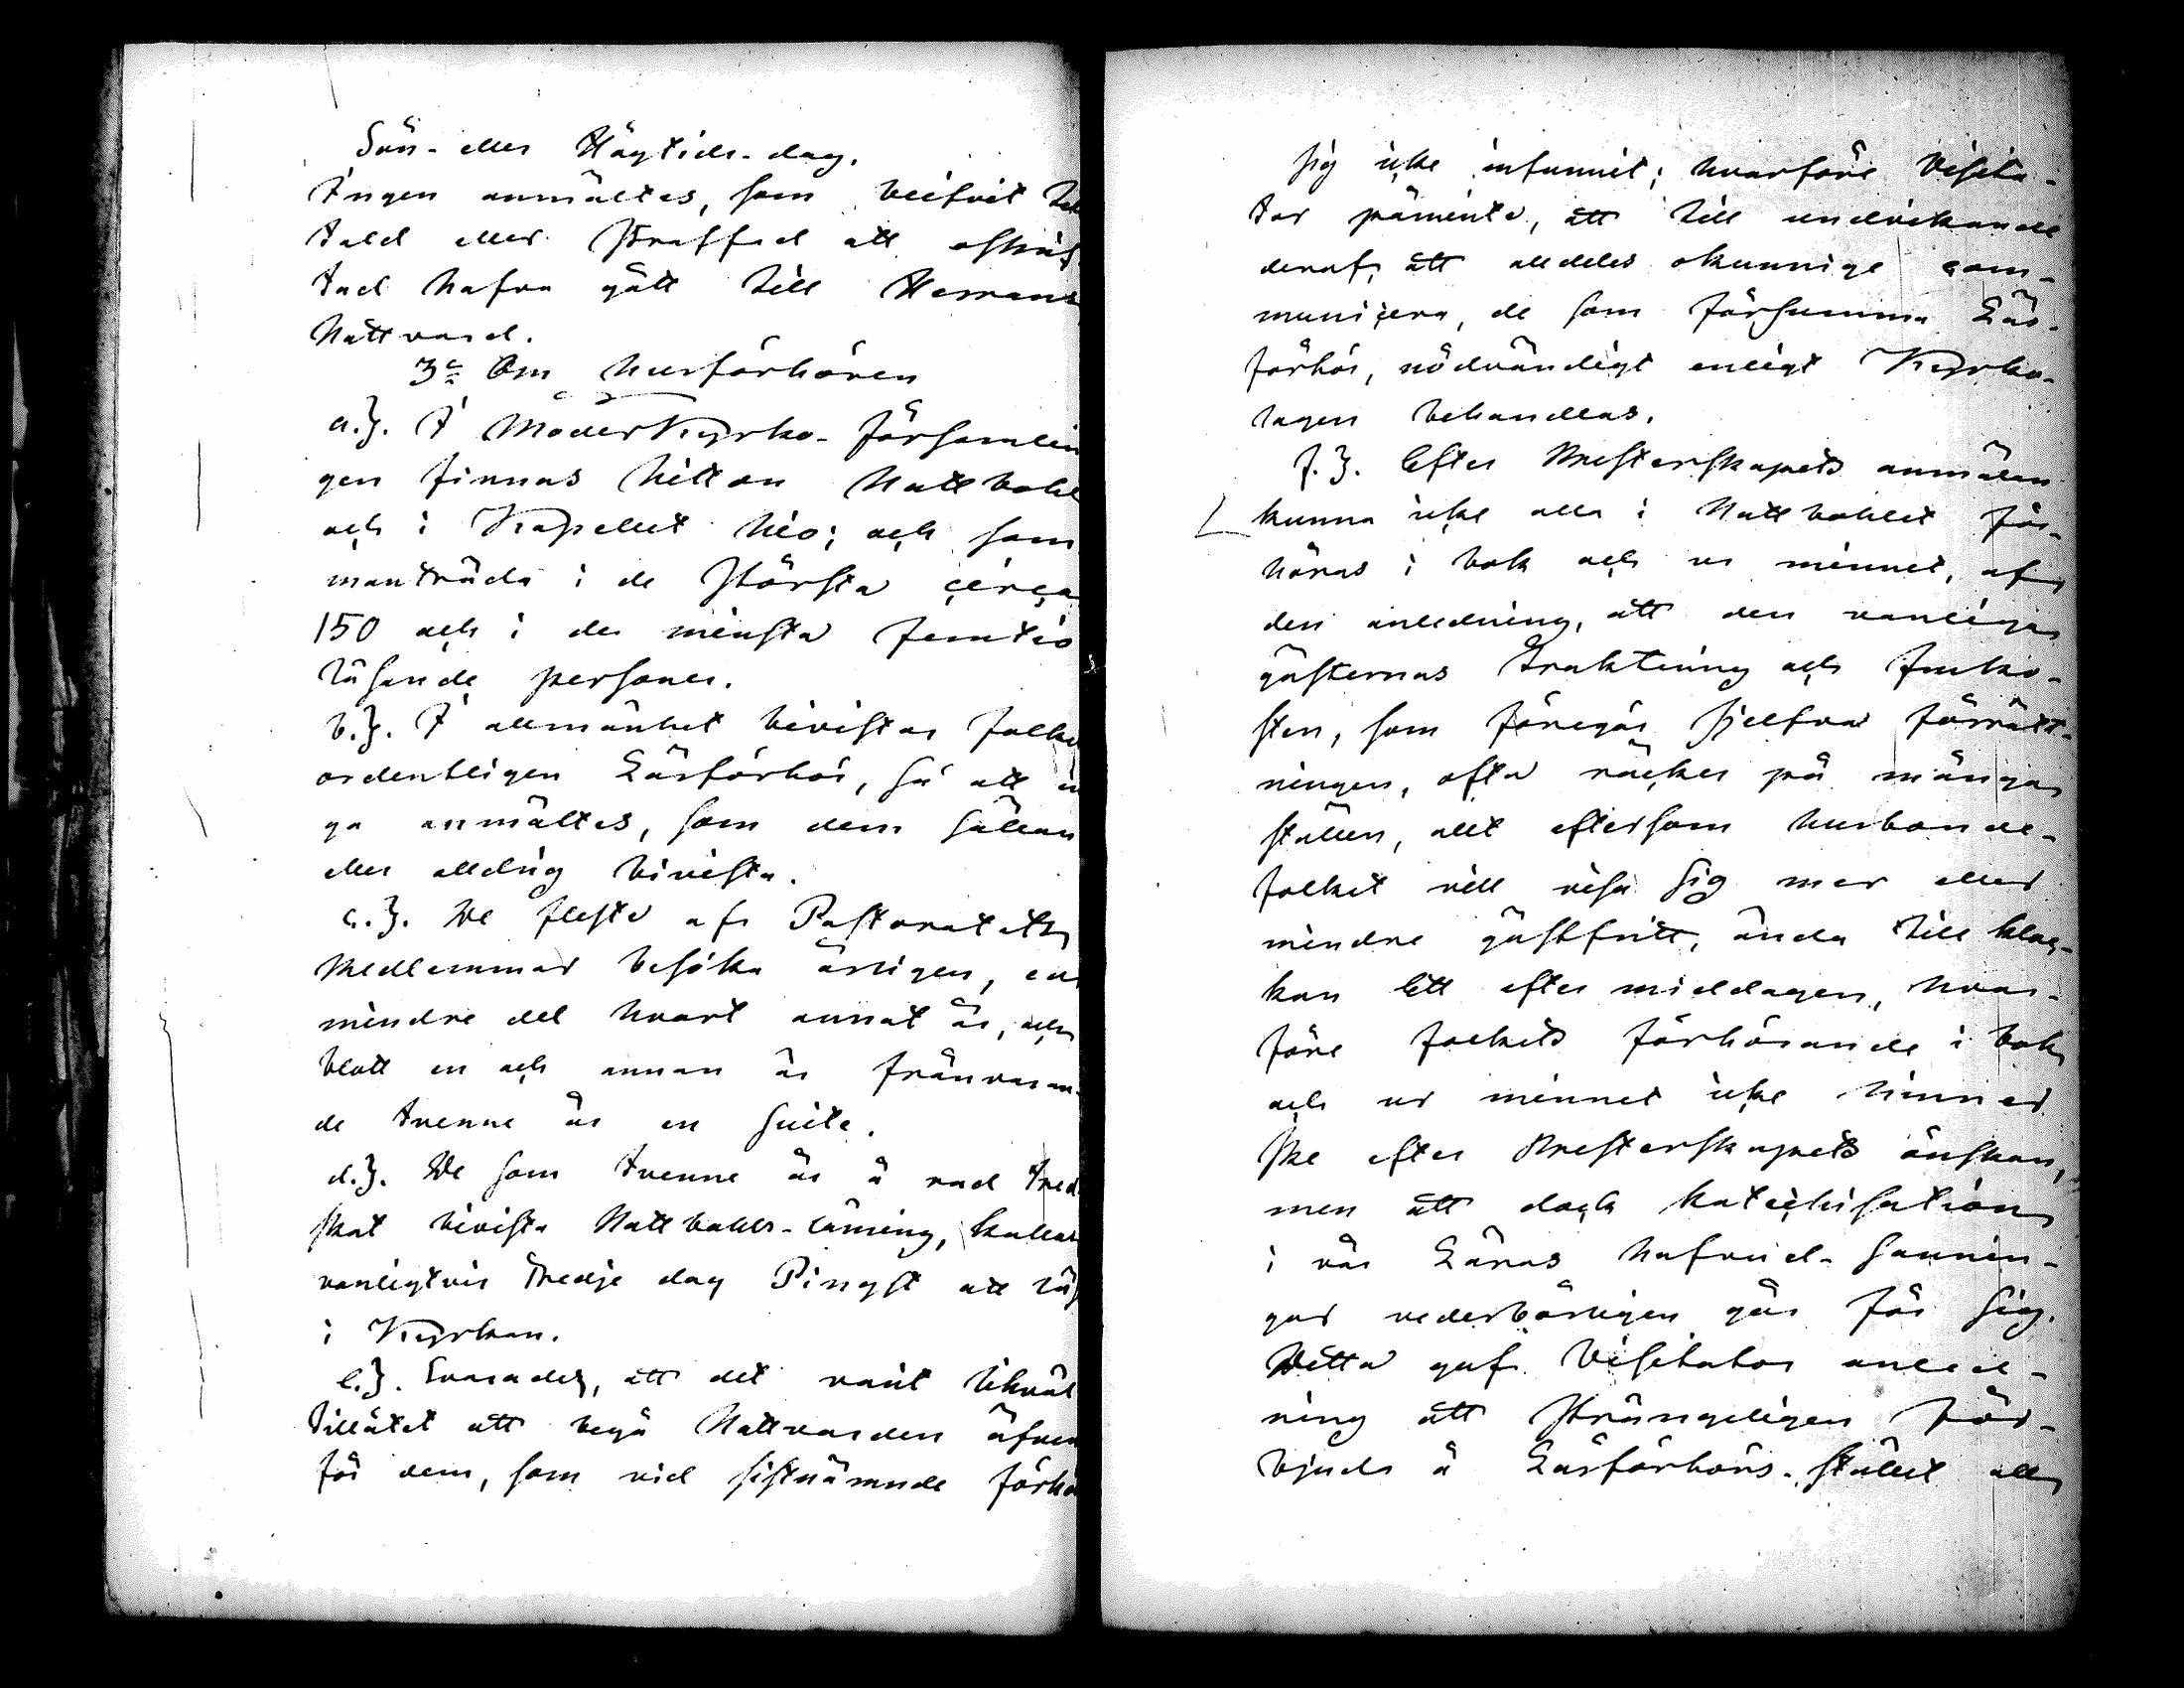 Sön- eller Högtids-dag.
Ingen anmältes, som blifvit till
tald eller straffad att oskrif
tad hafva gått till Herrans
Nattvard.
3:o Om husförhören
a.). I Moderkyrko-församlin
gen finnas nitton Nattbohl
och i Kapellet nio; och sam
manträda i de största circa
150 och i de minsta femtio
läsande personer.
b.). I allmänhet bivistas folket
ordentligen Läsförhör, så att in
ga anmältes, som dem sällan
eller alldrig bivista.
c.). De fleste af Pastoratets
Medlemmar besöka årligen, en
mindre del hvart annat år, och
blott en och annan är frånvaran-
de tvenne år en suite.
d.). De som tvenne år å rad tred
skat bivista Nattbohls-läsning, kallas
vanligtvis tredje dag Pingst att läs
i Kyrkan.
e.). Svarades, att det varit likväl
tillåtet att begå Nattvarden äfven
för dem, som vid sistnämnde förhö
sig icke infunnit; hvarföre Visita-
tor påminte, att till undvikande
deraf, att alldeles okunnige com-
municera, de som försumma Läs-
förhör, nödvändigt enligt Kyrko-
lagen behandlas.
f.). Efter Presterskapets anmälan
kunna icke alla i Nattbohlet för-
höras i bok och ur minnet, af
den anledning, att den vanliga
gästernas Traktering och fruko-
sten, som föregår sjelfva förrätt-
ningen, ofta räcker på många
ställen, allt eftersom husbonde-
folket vill visa sig mer eller
mindre gästfritt, ända till kloc-
kan Ett efter middagen, hvar-
före folkets förhörande i bok
och ur minnet icke hinner
ske efter Presterskapets önskan,
men att dock katechisation
i vår Läras hufvud-sannin-
gar vederbörligen går för sig.
Detta gaf Visitator anled-
ning att strängeligen för-
bjuda å Läsförhörs-stället all